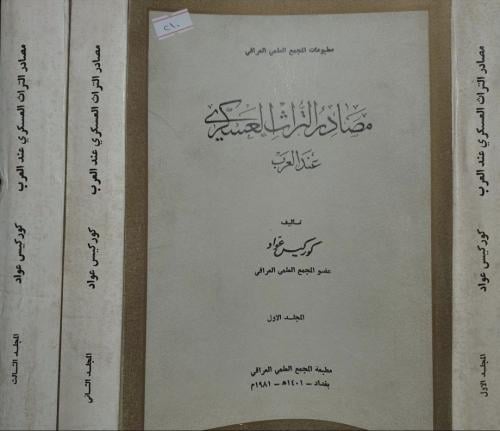 مصادر التراث العسكري عند العرب
كوركيس عواد
المجلد الثالث
مصادر التراث العسكري عند العرب
كوركيس عواد
المجلد الثاني
مطبوعات المجمع العلمي العراقي
مصادر التراث العسكري
عند العرب
تأليف
كوركيس عواد
عضو المجمع العلمي العراقي
المجلد الاول
مطبعة المجمع العلمي العراقي
بغداد - ١٤٠١هـ - ١٩٨١م
مصادر التراث العسكري عند العرب
كوركيس عواد
المجلد الاول